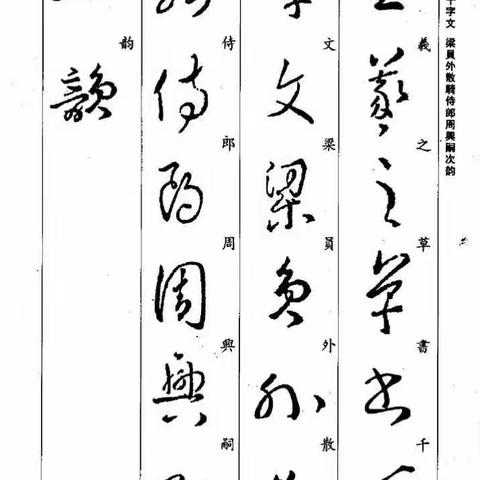 千字文 梁員外散騎侍郎周興嗣次韵
羲之草書千
羲之草書
文梁員外散
文梁員外
侍郎周興嗣
侍郎周興
韵
韻